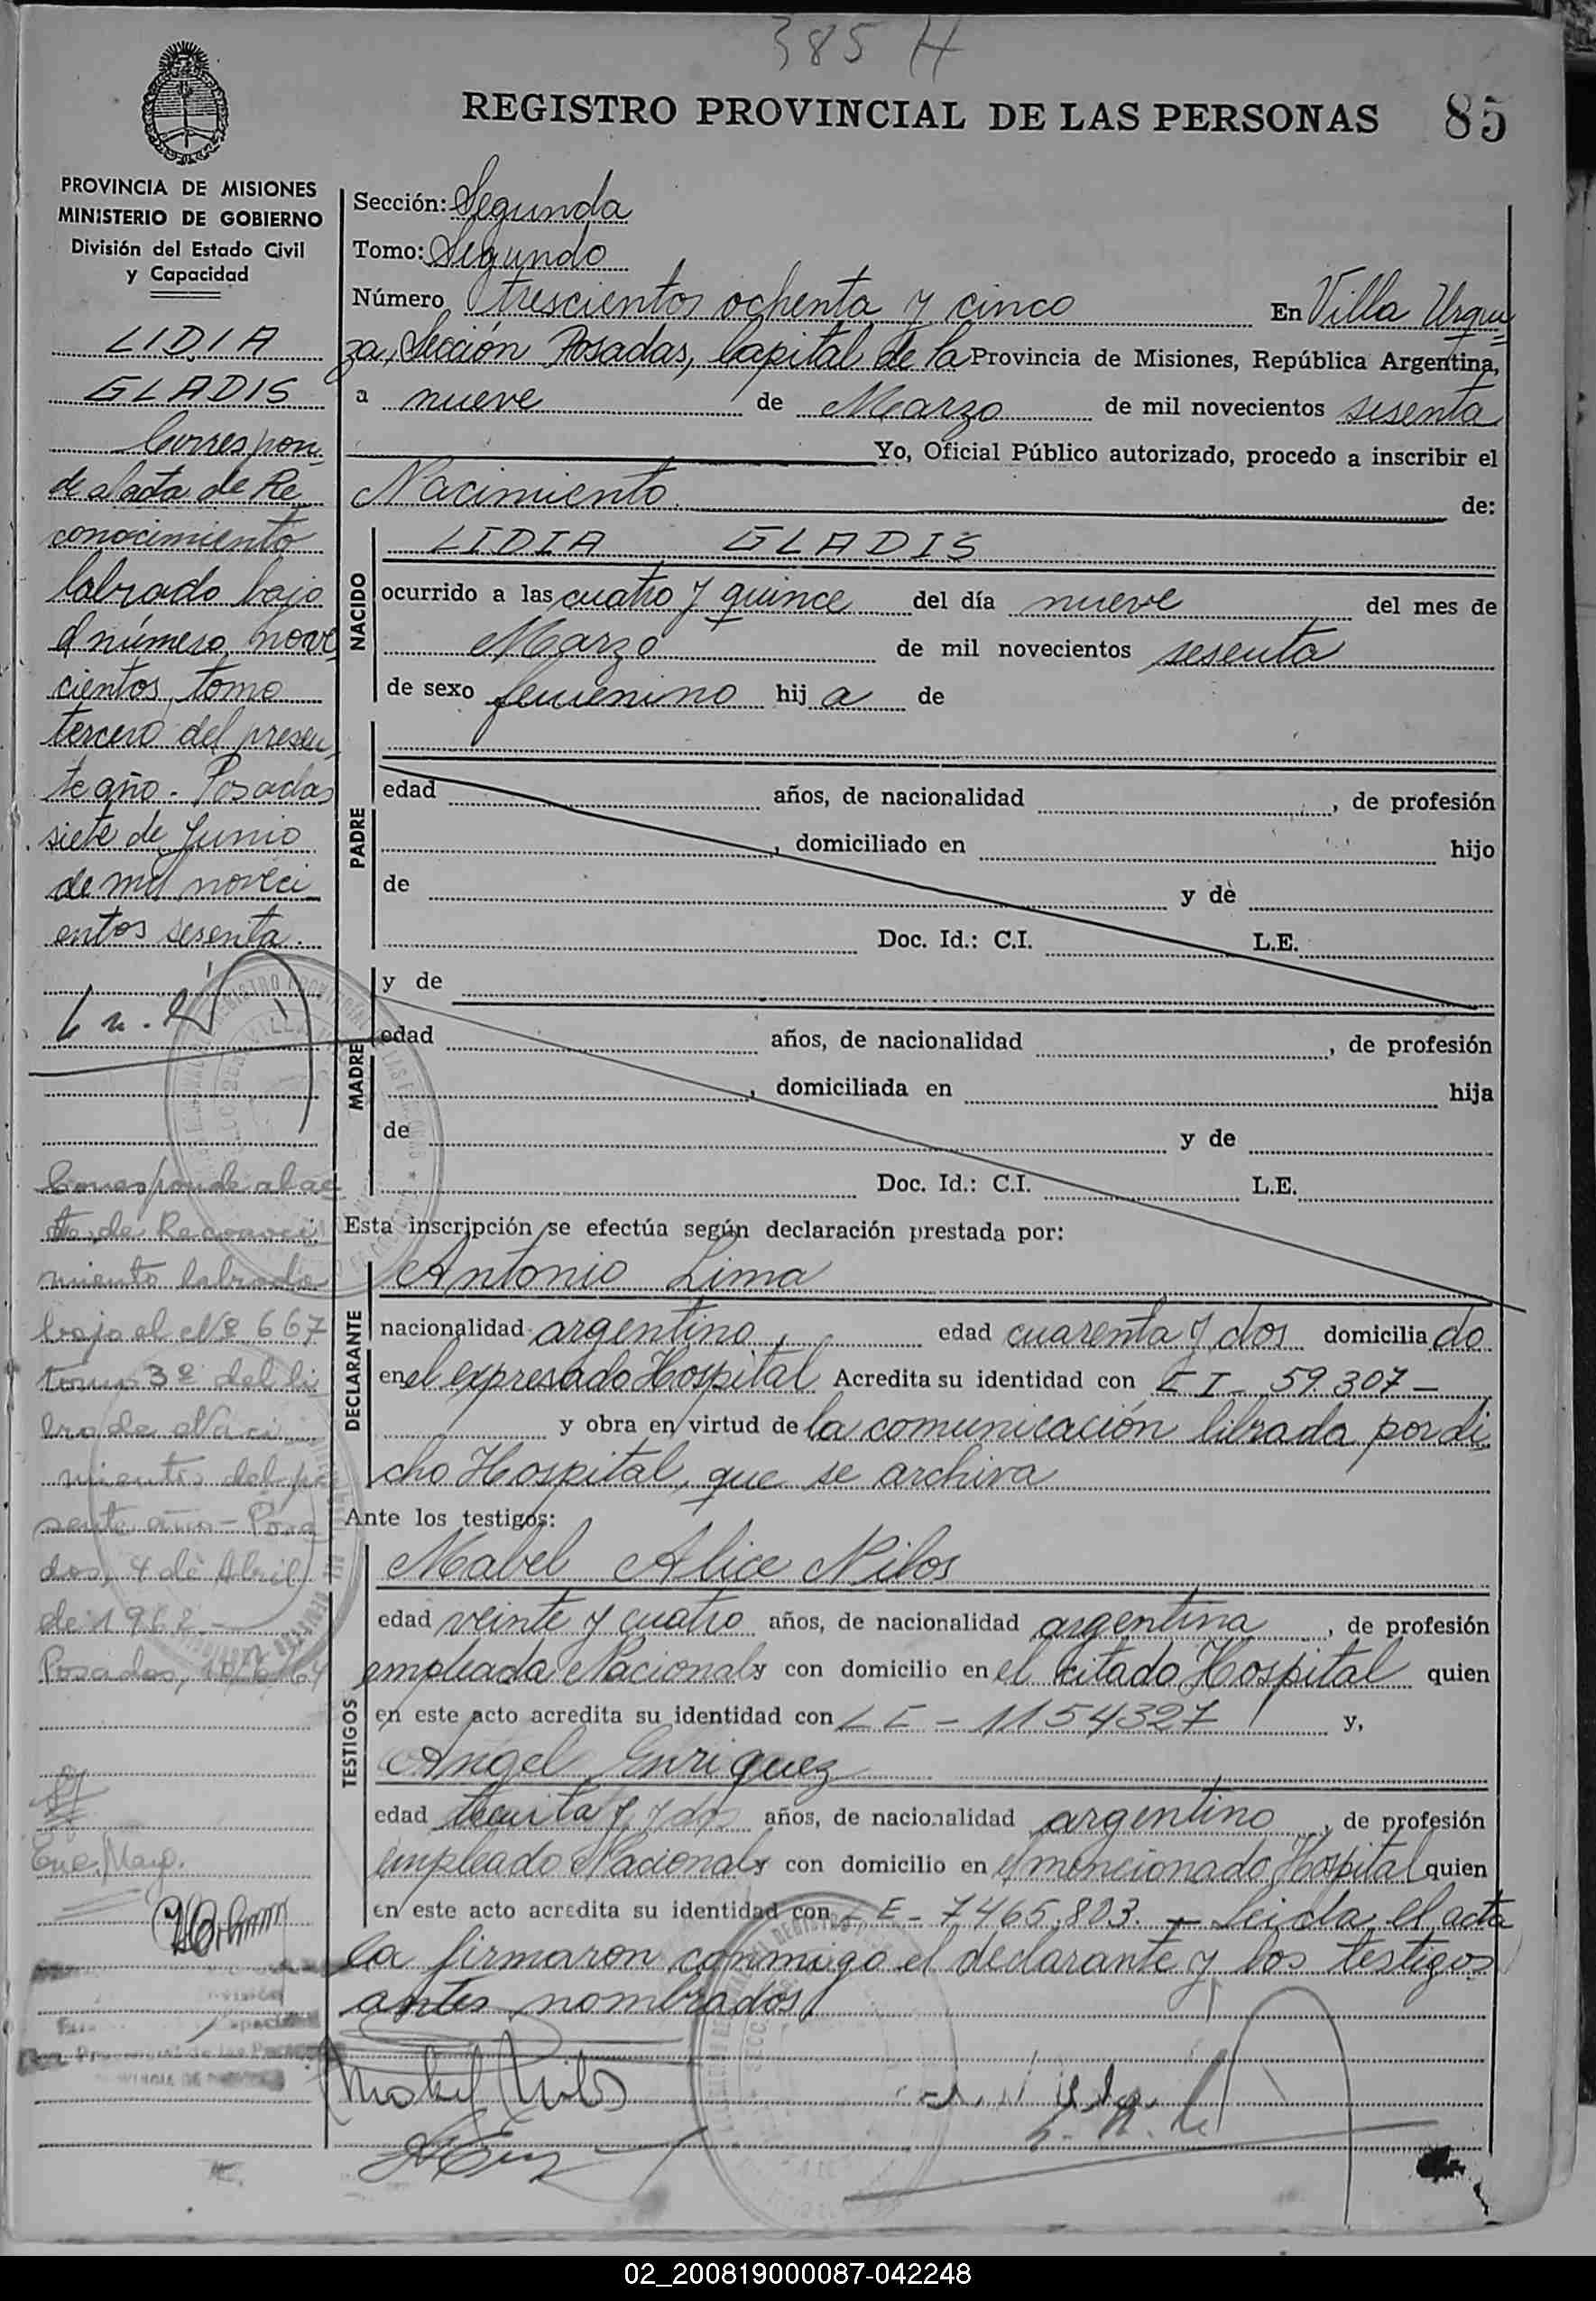 385 H
REGISTRO PROVINCIAL DE LAS PERSONAS 85
PROVINCIA DE MISIONES
MINISTERIO DE GOBIERNO
División del Estado Civil
y Capacidad
LIDIA
GLADIS
Correspon
de al acta de Re
conocimiento
labrado bajo
el número nove
cientos, tomo
tercero del presen
te año. Posadas
siete de Junio
de mil noveci
entos sesenta.
Corresponde al ac
ta de Reconoci
miento labrado
bajo el Nº 667
tomo 3º del li
bro de Naci
mientos del pre
sente año - Posa
das, 4 de Abril
de 1962.-
Posadas,
Sección: Segunda
Tomo: Segundo
Número trescientos ochenta y cinco En Villa Urqui
za, Sección Posadas, Capital de la Provincia de Misiones, República Argentina,
a nueve de Marzo de mil novecientos sesenta
Yo, Oficial Público autorizado, procedo a inscribir el
Nacimiento de:
NACIDO
LIDIA GLADIS
ocurrido a las cuatro y quince del día nueve del mes de
Marzo de mil novecientos sesenta
de sexo femenino hija de
PADRE
edad años, de nacionalidad , de profesión
, domiciliado en hijo
de y de
Doc. Id.: C.I. L.E.
MADRE
y de
edad años, de nacionalidad , de profesión
, domiciliada en hija
de y de
Doc. Id.: C.I. L.E.
Esta inscripción se efectúa según declaración prestada por:
DECLARANTE
Antonio Lima
nacionalidad argentino, edad cuarenta y dos domiciliado
en el expresado Hospital Acredita su identidad con C I - 59.307 -
y obra en virtud de la comunicación librada por di
cho Hospital, que se archiva
Ante los testigos:
TESTIGOS
Mabel Alice Nilos
edad veinte y cuatro años, de nacionalidad argentina, de profesión
empleada Nacional y con domicilio en el citado Hospital quien
en este acto acredita su identidad con L E - 1154327 y,
Angel Enriquez
edad treinta y dos años, de nacionalidad argentino, de profesión
empleado Nacional y con domicilio en el mencionado Hospital quien
en este acto acredita su identidad con L E - 7465.823. - Leida el acta
la firmaron conmigo el declarante y los testigos
antes nombrados
02_200819000087-042248